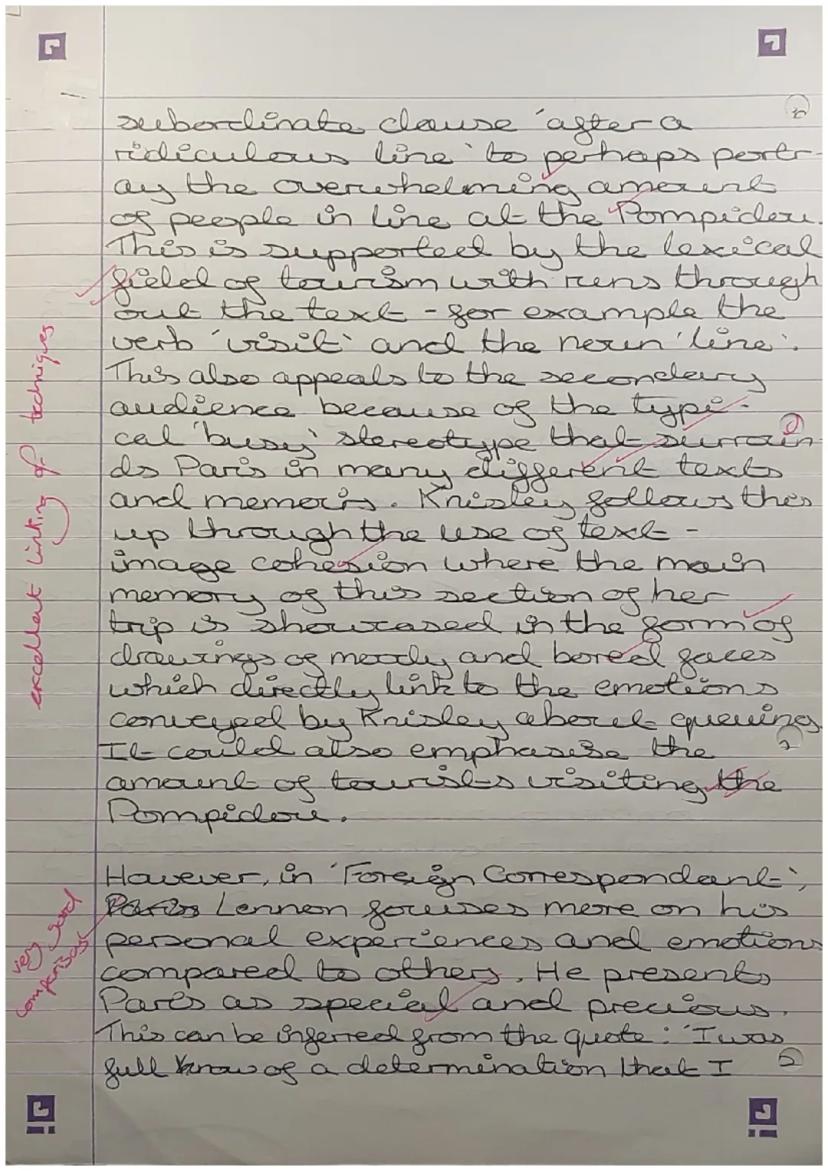 subordinate clause 'after a
ridiculous line' to perhaps portr-
ay the overwhelming amount
of people in line at the Pompidou.
This is supported by the lexical
field of tourism with runs through
out the text - for example the
verb 'visit' and the noun 'line'.
This also appeals to the secondary
audience because of the typi-
cal 'busy' stereotype that surroun
ds Paris in many different texts
and memoirs. Knisley follows this
up through the use of text-
image cohesion where the main
memory of this section of her
trip is showcased in the form of
drawings of moody and bored faces
which directly link to the emotions
conveyed by Knisley about queuing.
It could also emphasise the
amount of tourists visiting the
Pompidou.
excellent linking of techniques
However, in 'Foreign Correspondent',
Paris Lennon focuses more on his
personal experiences and emotions
compared to others. He presents
Paris as special and precious.
This can be inferred from the quote: 'I was
full know of a determination that I
very good
comparison